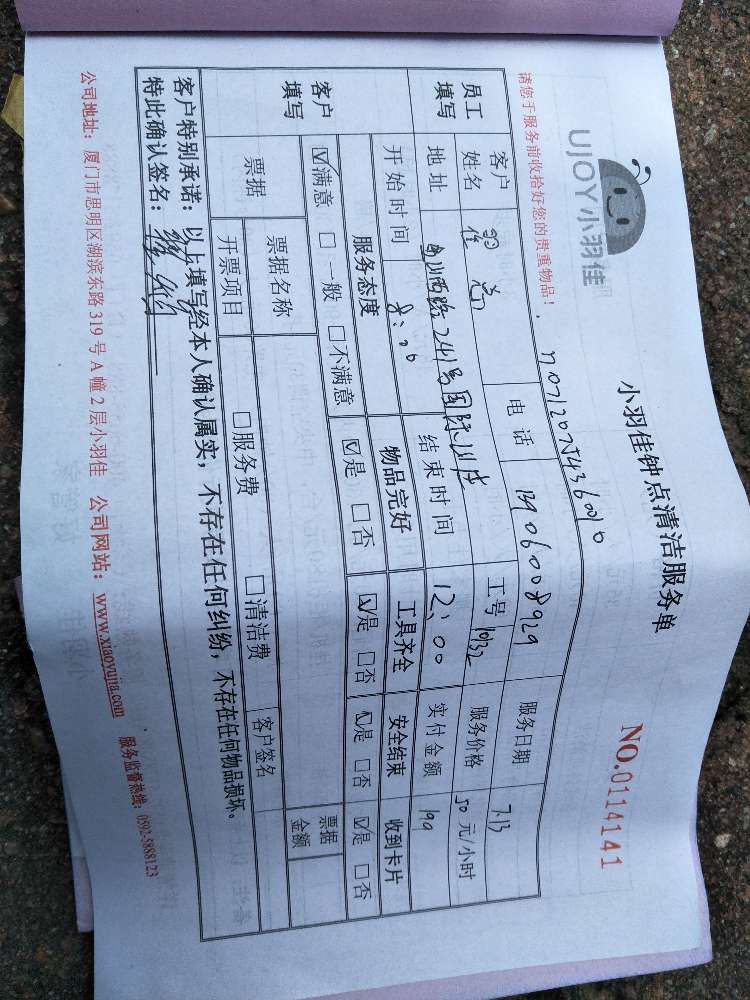 UJOY小羽佳
小羽佳钟点清洁服务单
NO.0114141
请您于服务前收拾好您的贵重物品!
员工填写
客户姓名
电话
服务日期 7.13
地址
工号
服务价格 50 元/小时
开始时间 8:00
结束时间 12:00
实付金额 190
客户填写
服务态度 物品完好 工具齐全 安全结束 收到卡片
☑满意 □一般 □不满意 ☑是 □否 ☑是 □否 ☑是 □否 ☑是 □否
票据
票据名称
票据金额
开票项目 □服务费 □清洁费 客户签名
客户特别承诺:以上填写经本人确认属实,不存在任何纠纷,不存在任何物品损坏。
特此确认签名:
公司地址:厦门市思明区湖滨东路 319 号 A 幢 2 层小羽佳 公司网站:www.xiaoyujia.com 服务监督热线:0592-5888123